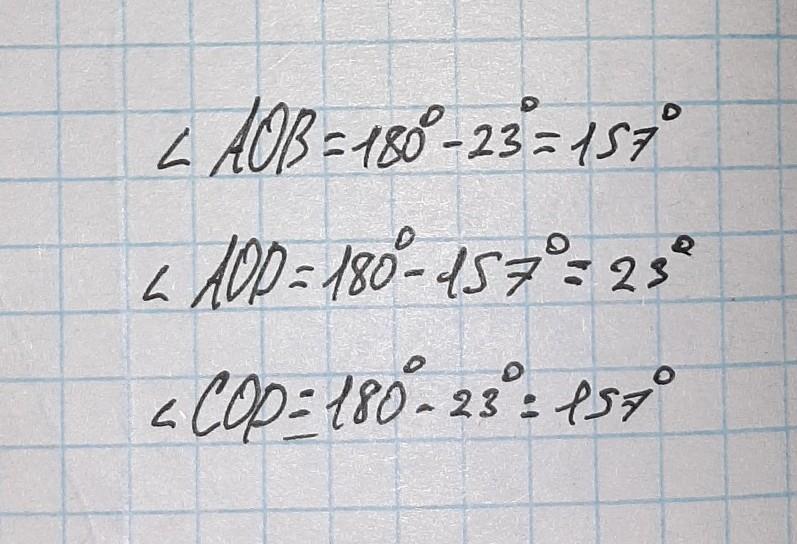 ∠ AOB = 180° - 23° = 157°
∠ AOD = 180° - 157° = 23°
∠ COD = 180° - 23° = 157°